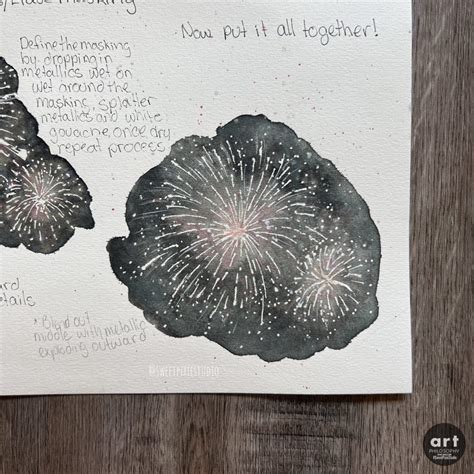 masking
Now put it all together!
Define the masking
by dropping in
metallics wet on
wet around the
masking, splatter
metallics and white
gouache once dry
repeat process
details
*Blend out
middle with metallic
exploding outward
@SWEETPETESTUDIO
art
PHILOSOPHY